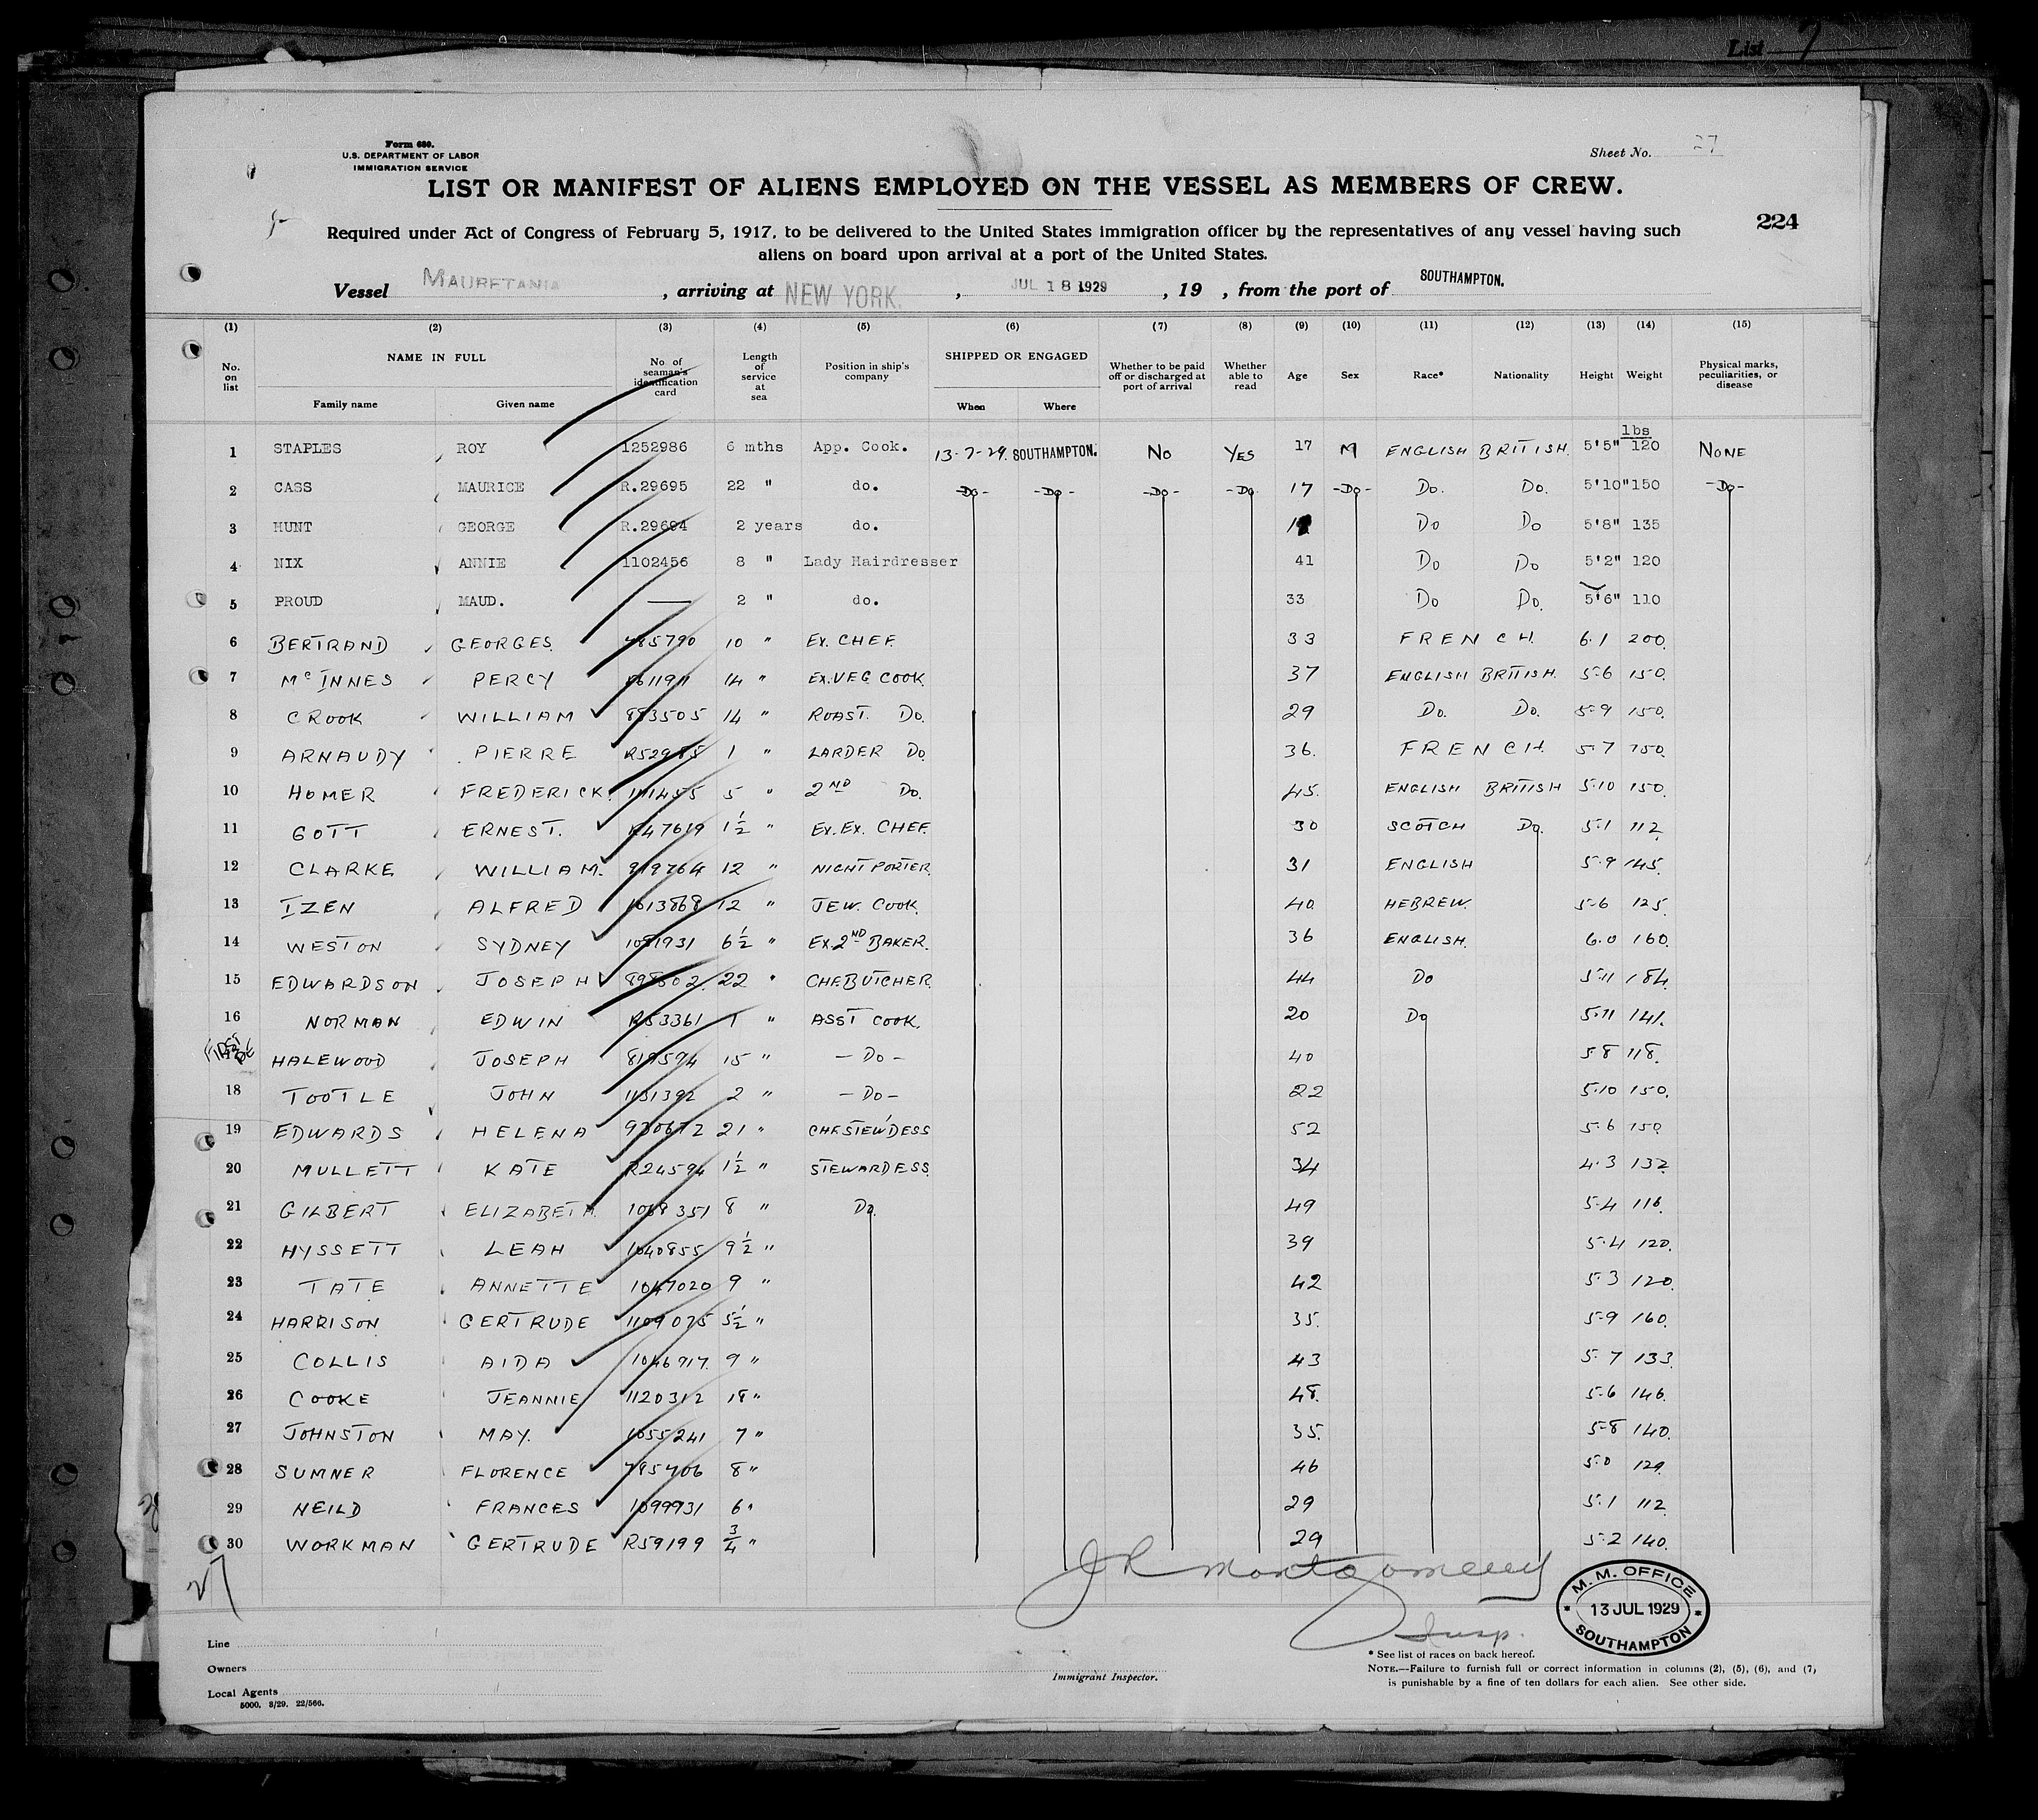 List 7
Form 680.
U.S. DEPARTMENT OF LABOR
IMMIGRATION SERVICE
Sheet No. 27
LIST OR MANIFEST OF ALIENS EMPLOYED ON THE VESSEL AS MEMBERS OF CREW.
224
Required under Act of Congress of February 5, 1917, to be delivered to the United States immigration officer by the representatives of any vessel having such
aliens on board upon arrival at a port of the United States.
Vessel MAURETANIA, arriving at NEW YORK, JUL 18 1929, 19 , from the port of SOUTHAMPTON.
(1) (2) (3) (4) (5) (6) (7) (8) (9) (10) (11) (12) (13) (14) (15)
No. on list NAME IN FULL Family name Given name No. of seaman's identification card Length of service at sea Position in ship's company SHIPPED OR ENGAGED When Where Whether to be paid off or discharged at port of arrival Whether able to read Age Sex Race* Nationality Height Weight Physical marks, peculiarities, or disease
lbs
1 STAPLES ROY 1252986 6 mths App. Cook. 13-7-29. SOUTHAMPTON. No YES 17 M ENGLISH BRITISH. 5'5" 120 NONE
2 CASS MAURICE R.29695 22 " do. -Do- -Do- -Do- -Do- 17 -Do- Do. Do. 5'10" 150 -Do-
3 HUNT GEORGE R.29694 2 years do. Do Do 5'8" 135
4 NIX ANNIE 1102456 8 " Lady Hairdresser 41 Do Do 5'2" 120
5 PROUD MAUD. — 2 " do. 33 Do Do. 5'6" 110
6 BERTRAND GEORGES 485790 10 " EX. CHEF. 33 FRENCH. 6.1 200.
7 McINNES PERCY 14 " EX.VEG COOK. 37 ENGLISH BRITISH. 5-6 150.
8 CROOK WILLIAM 883505 14 " ROAST. Do. 29 Do. Do. 5-9 150.
9 ARNAUDY PIERRE R52985 1 " LARDER Do. 36. FRENCH. 5-7 150.
10 HOMER FREDERICK. 5 " 2ND Do. 45. ENGLISH BRITISH 5-10 150.
11 GOTT ERNEST. R47619 1½ " EX.EX. CHEF. 30 SCOTCH Do. 5-1 112.
12 CLARKE WILLIAM. 919764 12 " NIGHT PORTER. 31 ENGLISH 5-9 145.
13 IZEN ALFRED 1013868 12 " JEW. COOK. 40. HEBREW. 5-6 125.
14 WESTON SYDNEY 1081931 6½ " EX.2ND BAKER. 36 ENGLISH. 6.0 160.
15 EDWARDSON JOSEPH 22 " CHF.BUTCHER. 44 Do 5-11 184.
16 NORMAN EDWIN R53361 1 " ASST COOK. 20 Do 5-11 141.
HALEWOOD JOSEPH 819594 15 " -Do- 40 5-8 118.
18 TOOTLE JOHN 1151392 2 " -Do- 22 5-10 150.
19 EDWARDS HELENA 930672 21 " CHF.STEW'DESS 52 5-6 150
20 MULLETT KATE R24594 1½ " STEWARDESS. 34 4.3 132
21 GILBERT ELIZABETH. 1069351 8 " Do. 49 5-4 116.
22 HYSSETT LEAH 1040855 9½ " 39 5-4 120.
23 TATE ANNETTE 1047020 9 " 42 5-3 120.
24 HARRISON GERTRUDE 1109075 5½ " 35. 5-9 160.
25 COLLIS AIDA 1046917. 9 " 43 5-7 133.
26 COOKE JEANNIE 1120312 18 " 48. 5-6 146.
27 JOHNSTON MAY. 1055241 7 " 35. 5-8 140.
28 SUMNER FLORENCE 795406 8 " 46 5-0 129.
29 NEILD FRANCES 1099931 6 " 29 5-1 112.
30 WORKMAN GERTRUDE R59199 ¾ " 29 5-2 140.
27
J R Montgomery
Insp.
M. M. OFFICE
13 JUL 1929
SOUTHAMPTON
Line
Owners
Local Agents
5000. 8/29. 22/566.
Immigrant Inspector.
* See list of races on back hereof.
NOTE.—Failure to furnish full or correct information in columns (2), (5), (6), and (7),
is punishable by a fine of ten dollars for each alien. See other side.